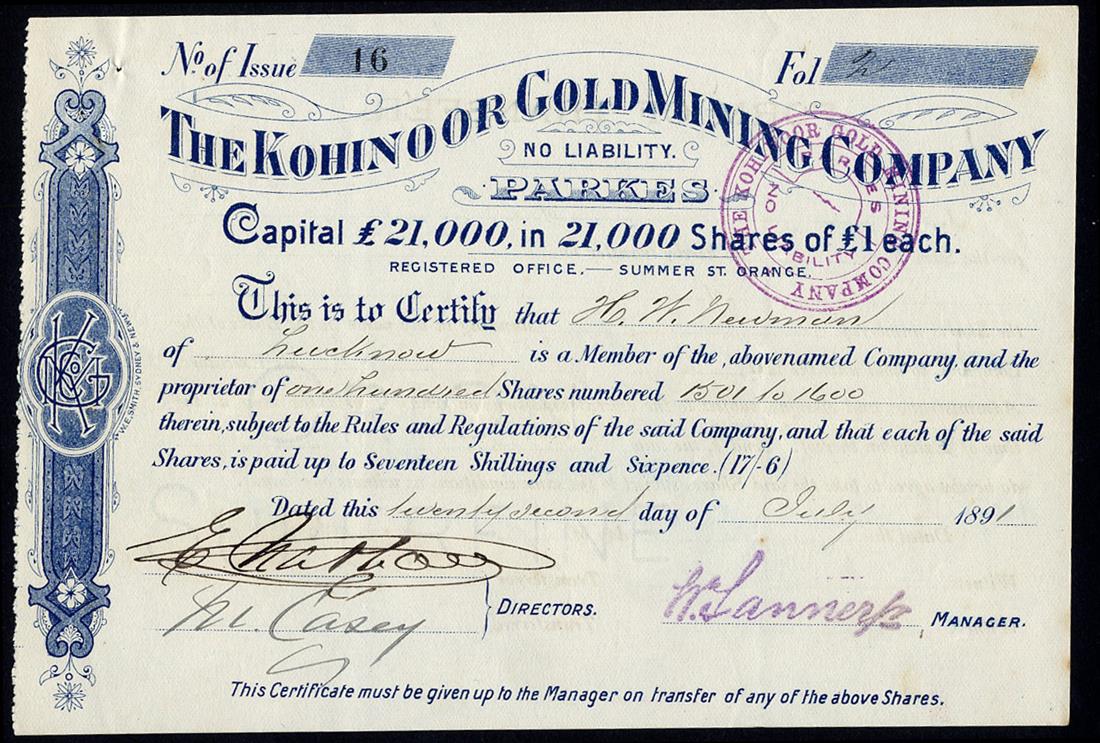 No. of Issue 16 Fol 2
THE KOHINOOR GOLD MINING COMPANY
NO LIABILITY.
PARKES.
Capital £21,000, in 21,000 Shares of £1 each.
REGISTERED OFFICE.— SUMMER ST. ORANGE.
This is to Certify that H. W. Newman
of Lucknow is a Member of the, abovenamed Company, and the
proprietor of one hundred Shares numbered 1501 to 1600
therein, subject to the Rules and Regulations of the said Company, and that each of the said
Shares, is paid up to Seventeen Shillings and Sixpence. (17/-6)
Dated this twenty second day of July 1891
M. Casey
DIRECTORS.
MANAGER.
This Certificate must be given up to the Manager on transfer of any of the above Shares.
THE KOHINOOR GOLD MINING COMPANY
PARKES
NO LIABILITY
KGMCo
W.E. SMITH, SYDNEY & NEWS